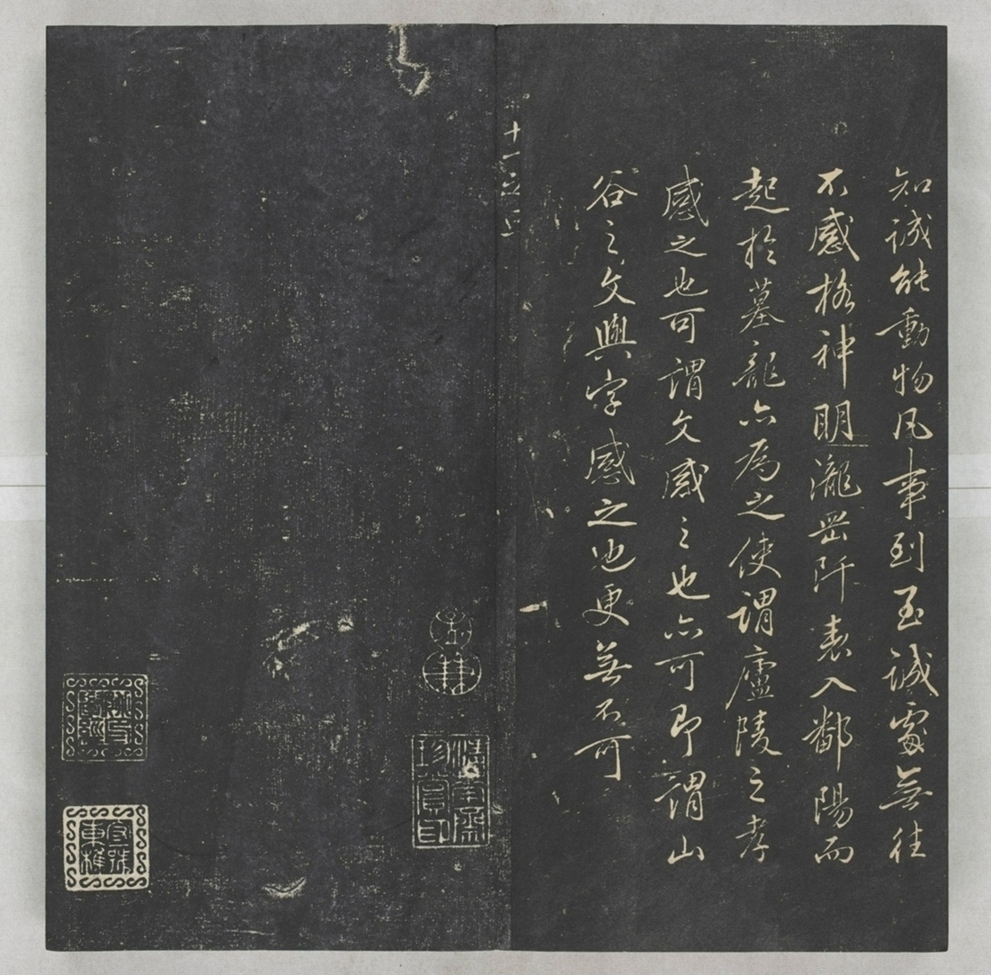 知誠能動物凡事到至誠處無往
不感格神明瀧岡阡表入鄱陽而
起於墓龍亦為之使謂廬陵之孝
感之也可謂文感之也亦可即謂山
谷之文與字感之也更無不可